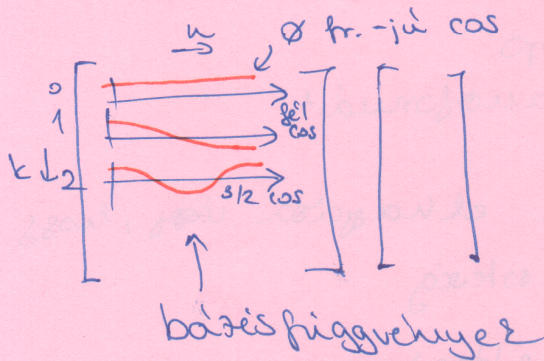 n
ø fr.-jú cos
0
1
fél
cos
k ↓ 2
3/2 cos
bázisfüggvények